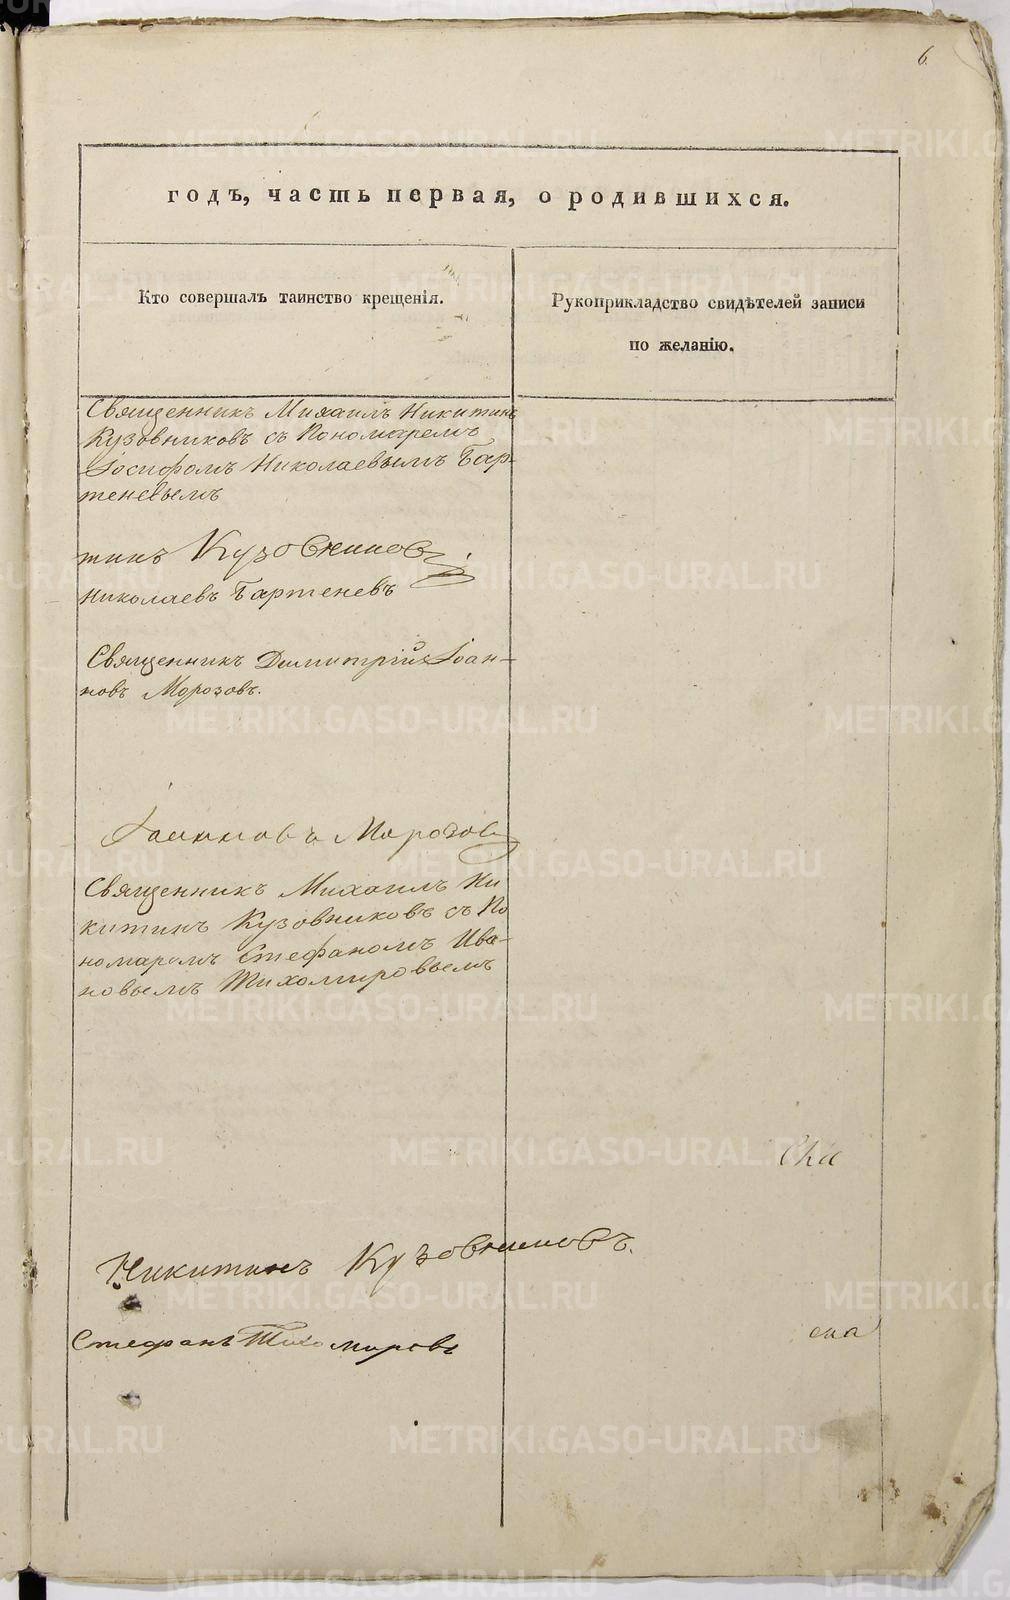 6.
годъ, часть первая, о родившихся.
Кто совершалъ таинство крещенія.
Рукоприкладство свидѣтелей записи
по желанію.
Священникъ Михаилъ Никитинъ
Кузовниковъ съ Пономаремъ
Іосифомъ Николаевымъ Бар-
теневымъ
тинъ Кузовниковъ
Николаевъ Бартеневъ
Священникъ Димитрій Іоан-
новъ Морозовъ.
Іоанновъ Морозовъ
Священникъ Михаилъ Ни
китинъ Кузовниковъ съ По
номаремъ Стефаномъ Ива-
новымъ Тихомировымъ
Никитинъ Кузовниковъ.
Стефанъ Тихомировъ
METRIKI.GASO-URAL.RU